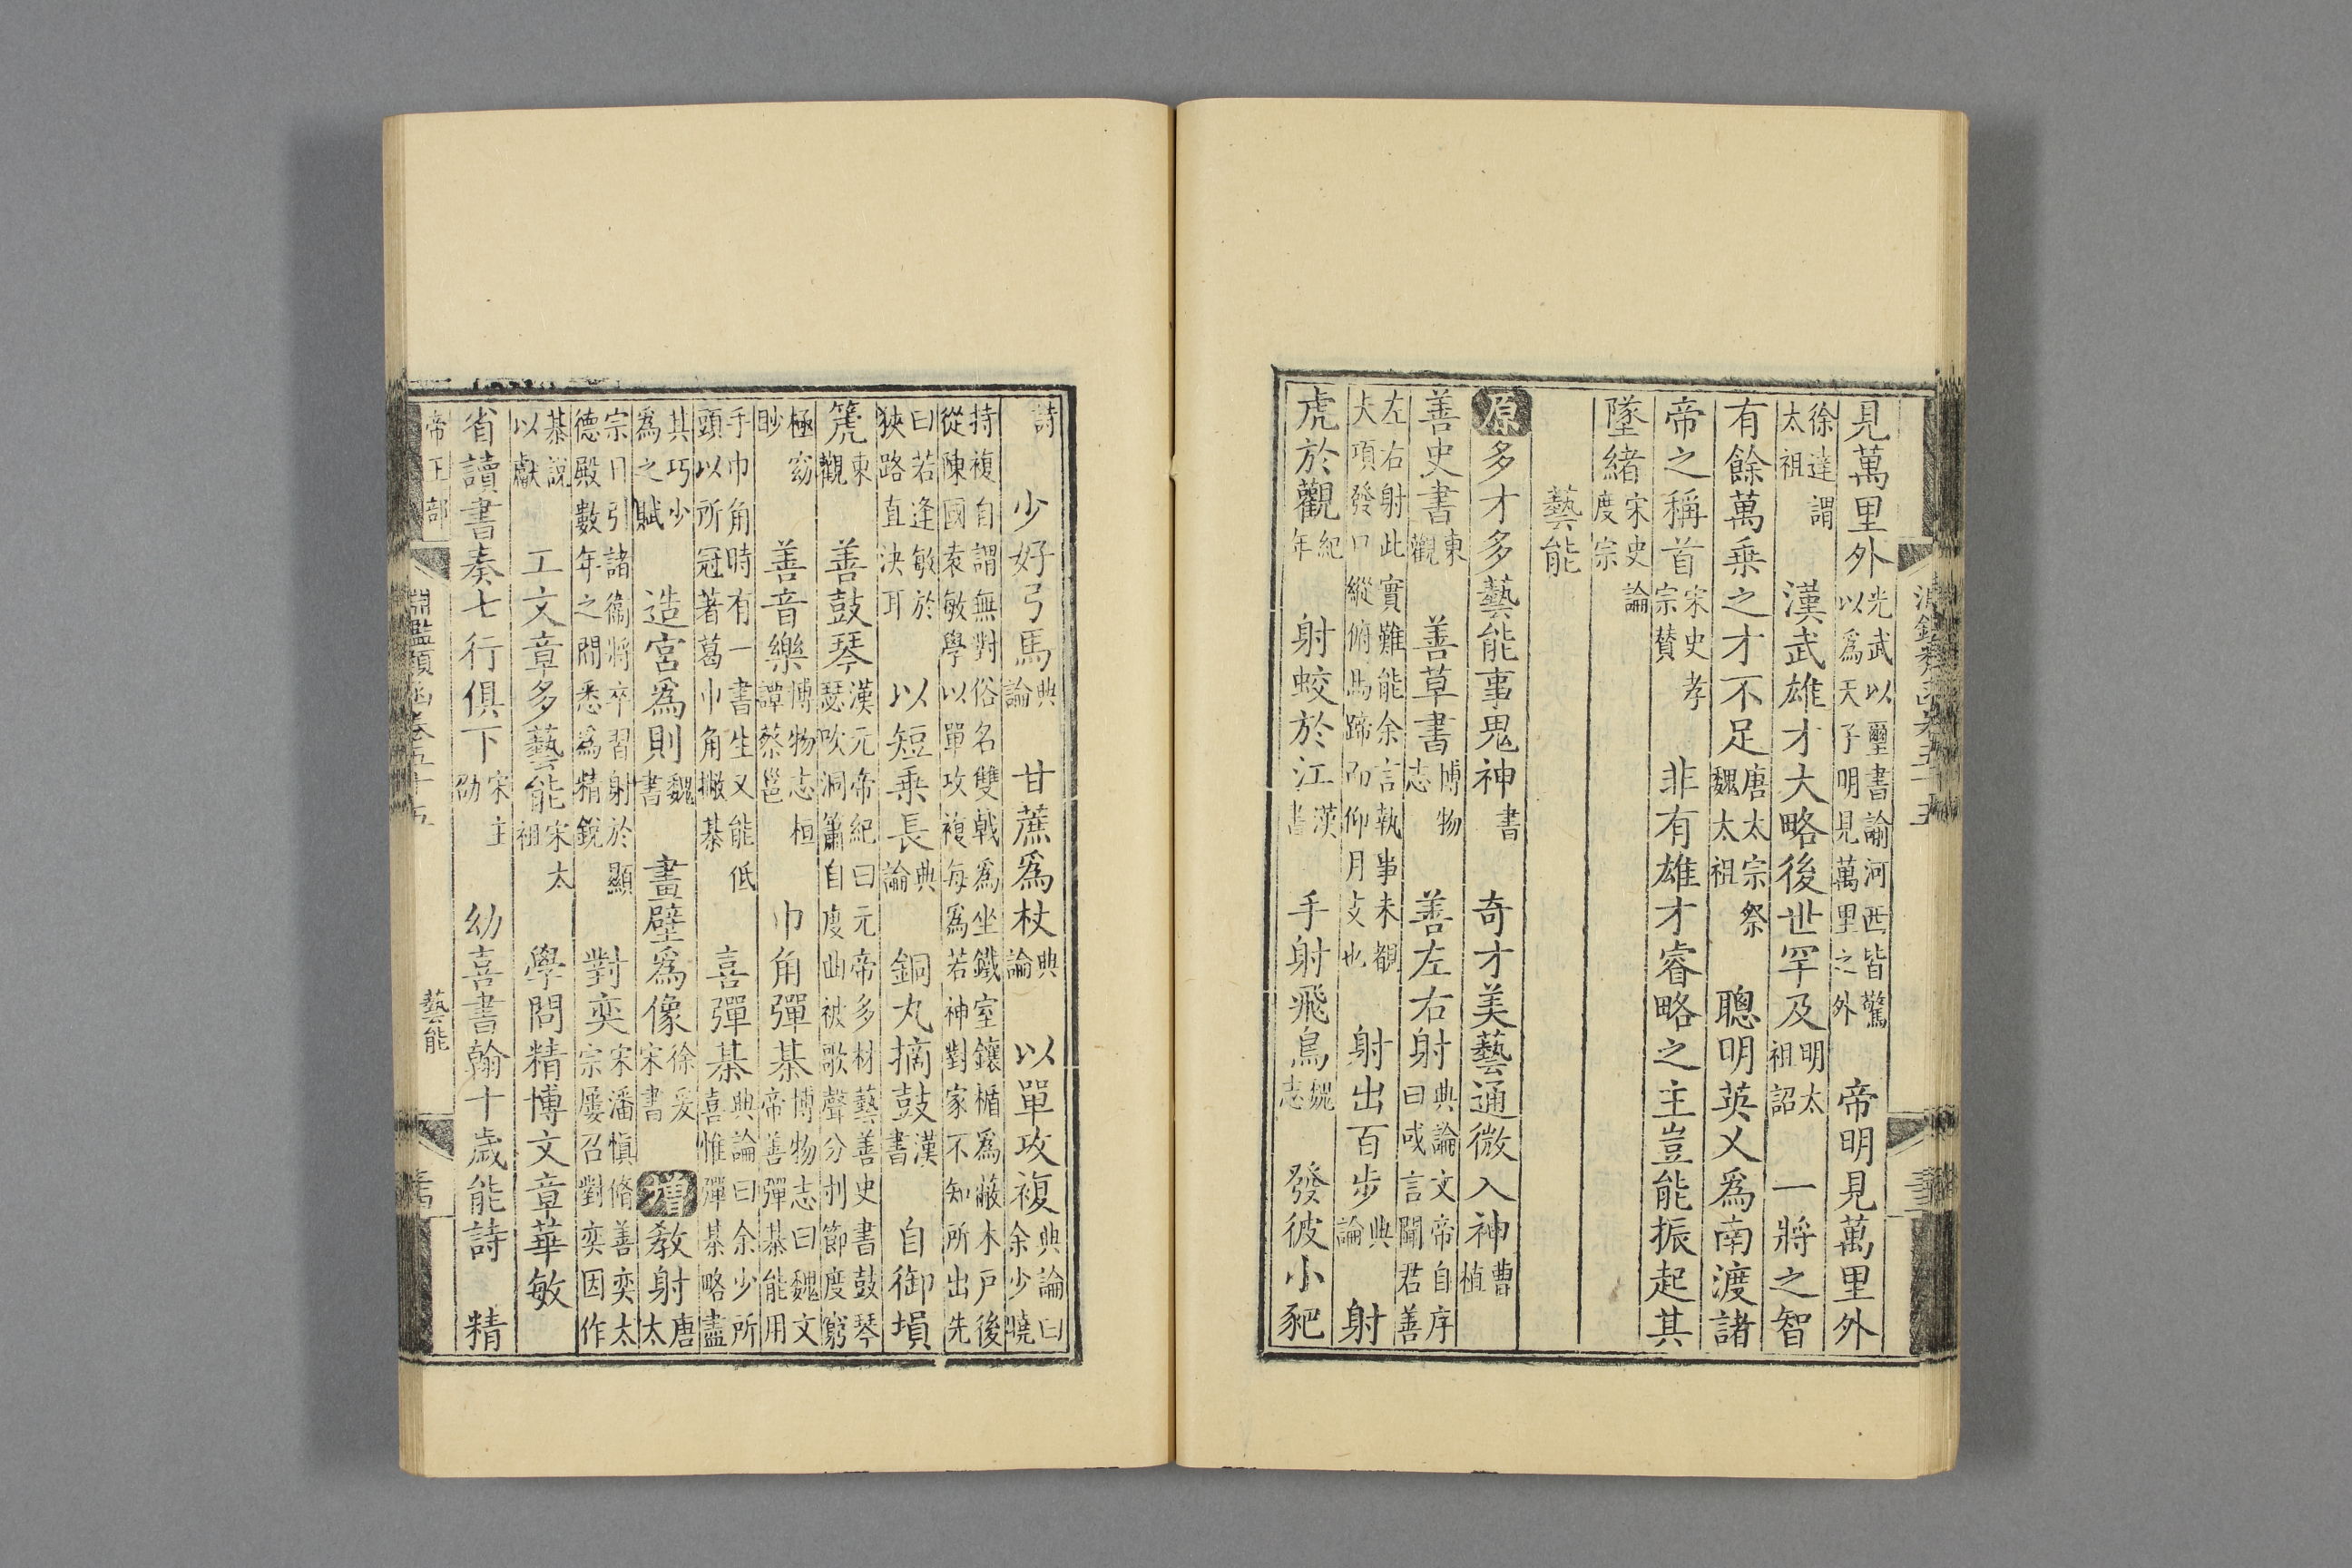 見萬里外光武以璽書諭河西皆驚以爲天子明見萬里之外 帝明見萬里外
徐達謂太祖 漢武雄才大略後世罕及明太祖詔 一將之智
有餘萬乗之才不足唐太宗祭魏太祖 聰明英乂爲南渡諸
帝之稱首宋史孝宗賛 非有雄才睿略之主豈能振起其
墜緒宋史論度宗
藝能
原多才多藝能事鬼神書 奇才美藝通微入神曹植
善史書東觀 善草書博物志 善左右射典論文帝自序曰或言聞君善
左右射此實難能余言執事未覩夫項發口縱俯馬蹄而仰月支也 射出百步典論 射
虎於觀紀年 射蛟於江漢書 手射飛鳥魏志 發彼小豝
詩 少好弓馬典論 甘蔗爲杖典論 以單攻複典論曰余少曉
持複自謂無對俗名雙戟爲坐鐵室鑲楯爲蔽木戸後從陳國袁敏學以單攻複每爲若神對家不知所出先
曰若逢敏於狹路直決耳 以短乗長典論 銅丸擿鼓漢書 自御塤
篪東觀 善鼓琴漢元帝紀曰元帝多材藝善史書鼓琴瑟吹洞簫自度曲被歌聲分刌節度窮
極窈眇 善音樂博物志桓譚蔡邕 巾角彈棊博物志曰魏文帝善彈棊能用
手巾角時有一書生又能低頭以所冠著葛巾角撇棊 喜彈棊典論曰余少所喜惟彈棊略盡
其巧少爲之賦 造宮爲則魏書 畫壁爲像徐爰宋書 增教射唐太
宗日引諸衞將卒習射於顯德殿數年之閒悉爲精銳 對奕宋潘愼脩善奕太宗屢召對奕因作
棊說以獻 工文章多藝能宋太祖 學問精博文章華敏
省讀書奏七行俱下宋主劭 幼喜書翰十歲能詩 精
帝王部 淵鑑類函卷五十五 藝能